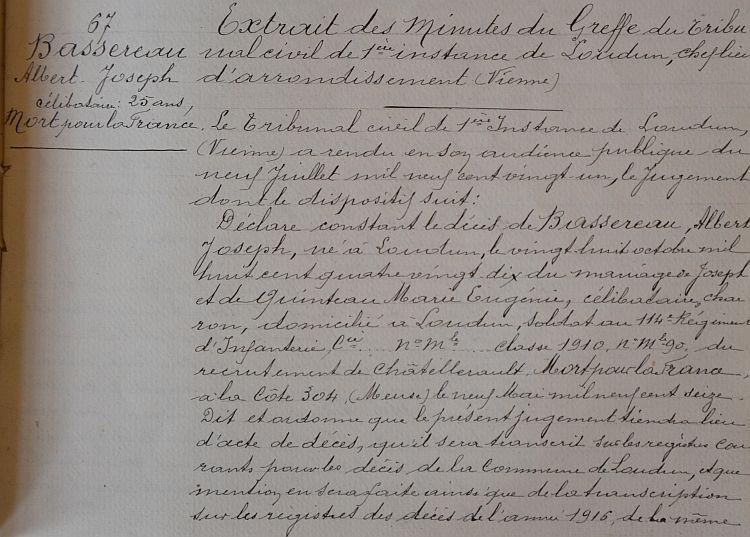 67
Bassereau
Albert-Joseph
célibataire: 25 ans,
Mort pour la France.
Extrait des Minutes du Greffe du Tribu
nal civil de 1ère instance de Loudun, chef lieu
d'arrondissement (Vienne)
Le Tribunal civil de 1ère Instance de Loudun,
(Vienne) a rendu en son audience publique du
neuf Juillet mil neuf cent vingt un, le Jugement
dont le dispositif suit:
Déclare constant le décès de Bassereau, Albert
Joseph, né à Loudun, le vingt huit octobre mil
huit cent quatre vingt dix du mariage de Joseph
et de Quinteau Marie Eugénie, célibataire, char
ron, domicilié à Loudun, soldat au 114e Régiment
d'Infanterie, Cie ... no Mle ... classe 1910. no Mle 90. du
recrutement de Châtellerault. Mort pour la France,
à la Côte 304, (Meuse) le neuf Mai mil neuf cent seize.
Dit et ordonne que le présent jugement tiendra lieu
d'acte de décès, qu'il sera transcrit sur les registres cou
rants pour les décès de la Commune de Loudun, et que
mention en sera faite ainsi que de la transcription
sur les registres des décès de l'année 1916, de la même